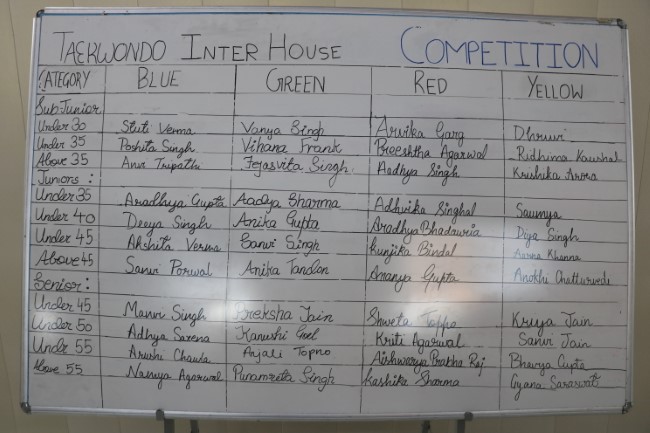 TAEKWONDO INTER HOUSE COMPETITION
CATEGORY BLUE GREEN RED YELLOW
Sub Junior
Under 30 Stuti Verma Vanya Singh Arvika Garg Dhruvi
Under 35 Poshita Singh Vihana Frank Preeshtha Agarwal Ridhima Kaushal
Above 35 Anvi Tripathi Tejasvita Singh. Aadhya Singh Krishika Arora
Juniors :
Under 35 Aradhya Gupta Aadya Sharma Adhvika Singhal Saumya
Under 40 Deeya Singh Anika Gupta Aradhya Bhadauria Diya Singh
Under 45 Akshita Verma Sanvi Singh Kunjika Bindal Aarna Khanna
Above 45 Sanvi Porwal Anika Tandon Ananya Gupta Anokhi Chatturvedi
Senior :
Under 45 Mann Singh Preksha Jain Shweta Toppo Kriya Jain
Under 50 Adhya Saxena Kanushi Goel Kriti Agarwal Sanvi Jain
Undr 55 Arushi Chawla Anjali Topno Aishwarya Prabha Raj Bhavya Gupta
Above 55 Navya Agarwal Punamrita Singh Kashika Sharma Gyana Saraswat